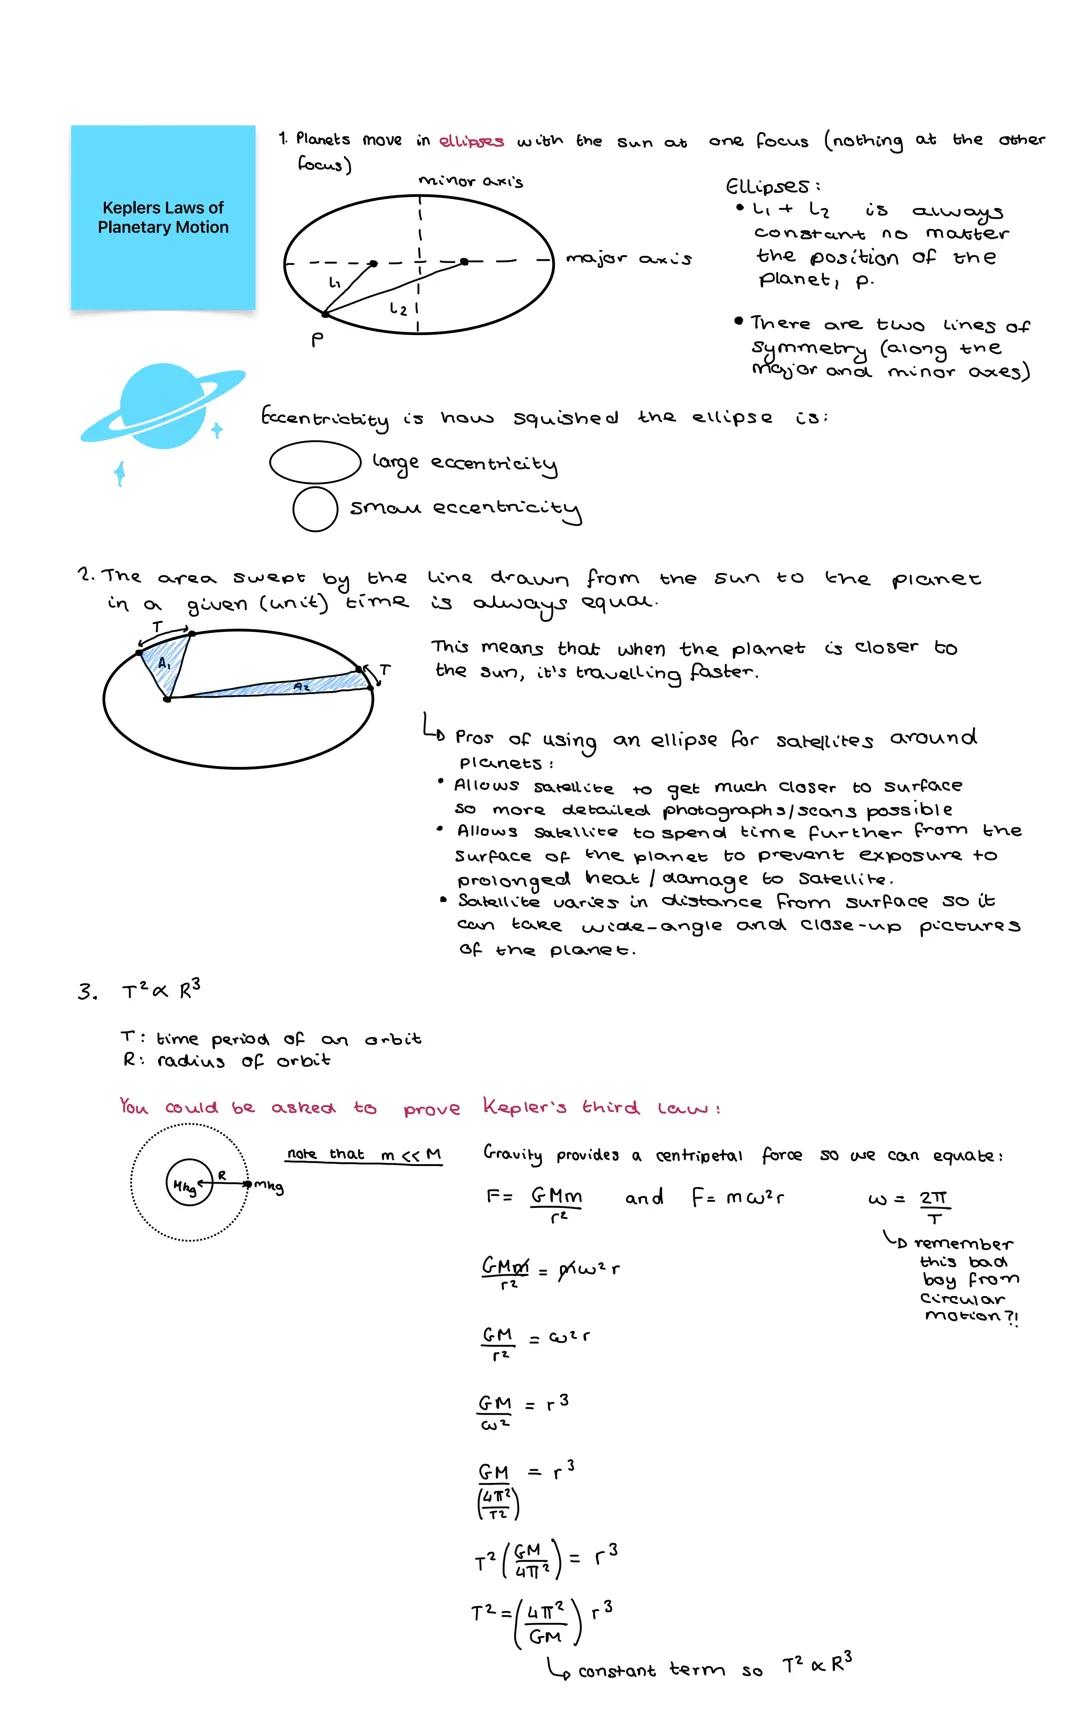 Keplers Laws of
Planetary Motion
1. Planets move in ellipses with the sun at one focus (nothing at the other
focus)
minor axis
major axis
L₁
L₂
P
Ellipses:
• L₁ + L₂ is always
constant no matter
the position of the
planet, p.
• There are two lines of
symmetry (along the
major and minor axes)
Eccentricity is how squished the ellipse is:
large eccentricity
small eccentricity
2. The area swept by the line drawn from the sun to the planet
in a given (unit) time is always equal.
T
A₁
T
A₂
This means that when the planet is closer to
the sun, it's travelling faster.
↳ Pros of using an ellipse for satellites around
planets:
• Allows satellite to get much closer to surface
so more detailed photographs/scans possible
• Allows satellite to spend time further from the
surface of the planet to prevent exposure to
prolonged heat / damage to satellite.
• Satellite varies in distance from surface so it
can take wide-angle and close-up pictures
of the planet.
3. T² ∝ R³
T: time period of an orbit
R: radius of orbit
You could be asked to prove Kepler's third law:
Mkg
R
mkg
note that m << M
Gravity provides a centripetal force so we can equate:
F = GMm/r² and F = mω²r
ω = 2π/T
↳ remember
this bad
boy from
circular
motion?!
GMm/r² = mω²r
GM/r² = ω²r
GM/ω² = r³
GM/(4π²/T²) = r³
T²(GM/4π²) = r³
T² = (4π²/GM) r³
↳ constant term so T² ∝ R³